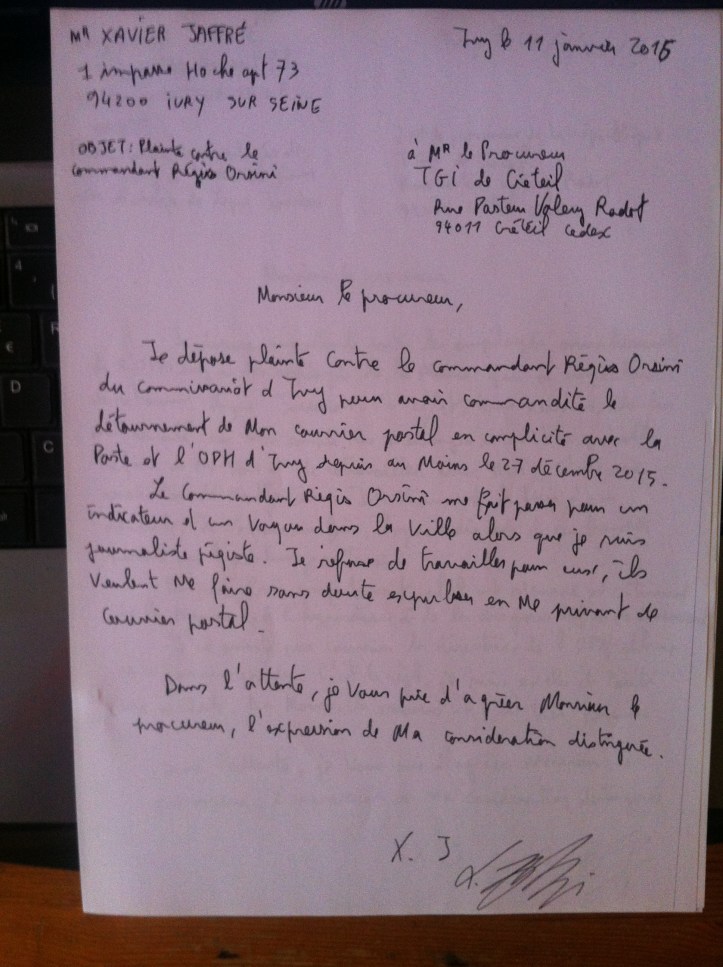 MR XAVIER JAFFRÉ
1 impasse Hoche apt 73
94200 IVRY SUR SEINE
Ivry le 11 janvier 2016
OBJET: Plainte contre le
commandant Régis Orsini
à MR le Procureur
TGI de Créteil
Rue Pasteur Valery Radot
94011 Créteil cedex
Monsieur le procureur,
Je dépose plainte contre le commandant Régis Orsini
du commissariat d'Ivry pour avoir commandité le
détournement de Mon courrier postal en complicité avec la
Poste et l'OPH d'Ivry depuis au Moins le 27 décembre 2015.
Le Commandant Régis Orsini me fait passer pour un
indicateur et un Voyou dans la Ville alors que je suis
journaliste pigiste. Je refuse de travailler pour eux, ils
Veulent Me faire sans doute expulser en Me privant de
Courrier postal.
Dans l'attente, je Vous prie d'agréer Monsieur le
procureur, l'expression de Ma considération distinguée.
X. J